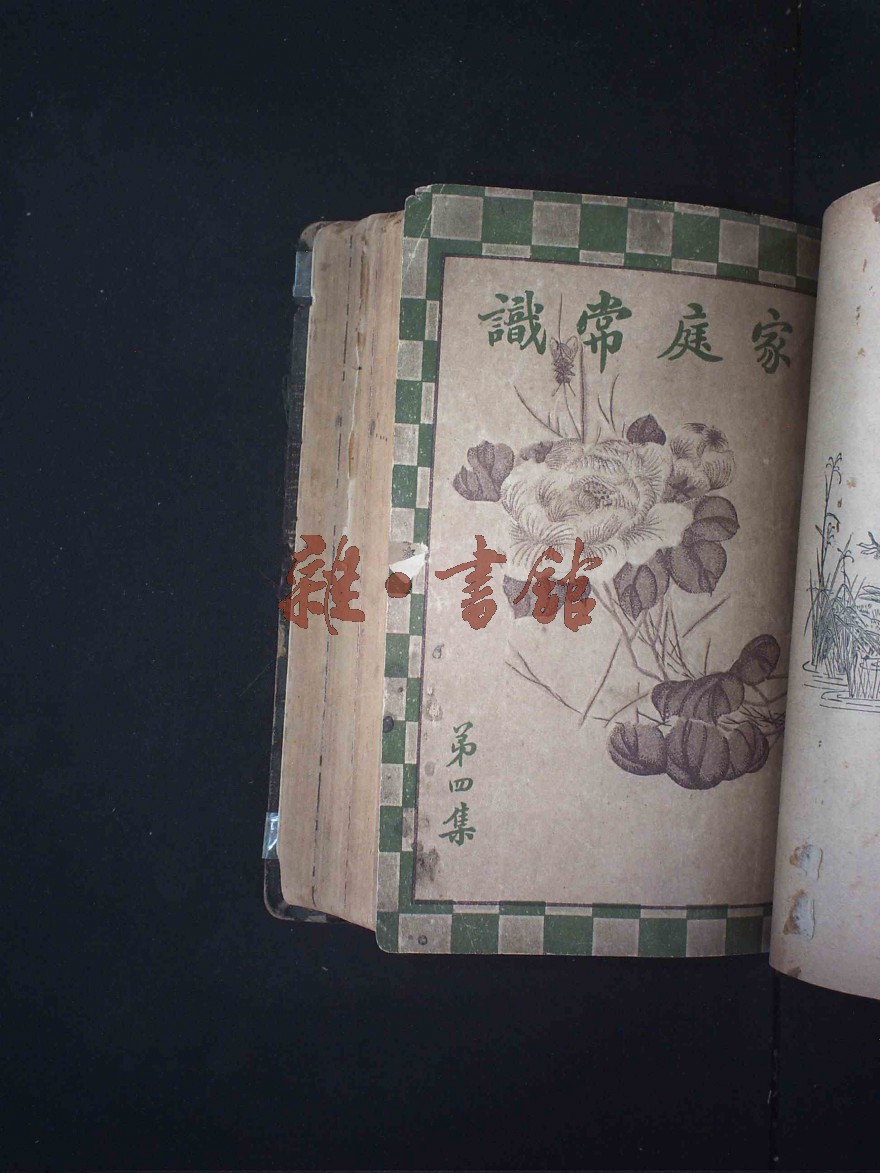 家庭常識
第四集
雜·書館